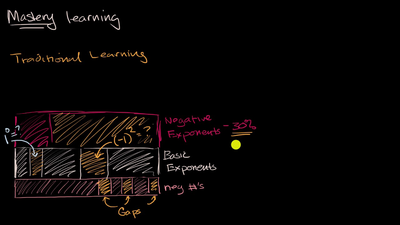 Mastery learning
Traditional Learning
Negative
Exponents - 30%
(-1)² = ?
Basic
Exponents
neg #'s
Gaps